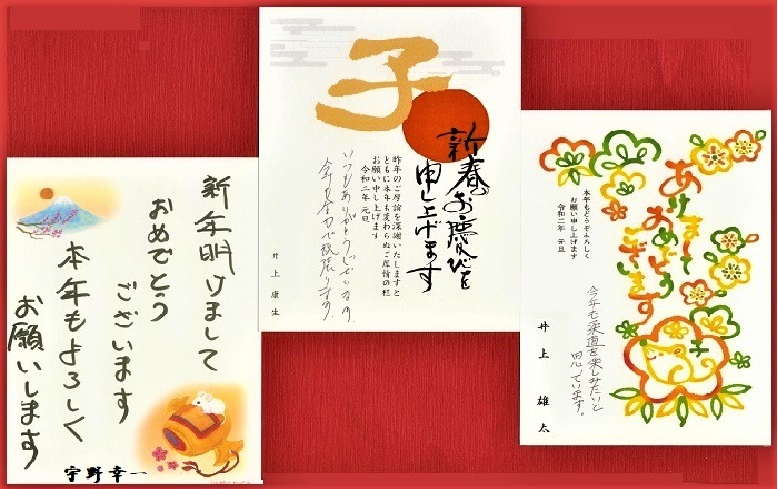 新年明けまして
おめでとう
ございます
本年もよろしく
お願いします
宇野幸一
子
新春のお慶びを
申し上げます
昨年のご厚誼を深謝いたしますと
ともに本年も変わらぬご厚誼の程
お願い申し上げます
令和二年 元旦
いつもありがとうございます。
今年も全力で頑張ります。
井上康生
あけまして
おめでとう
ございます
本年もどうぞよろしく
お願い申し上げます
令和二年 元旦
今年も柔道を楽しみたいと
思っています。
井上雄太